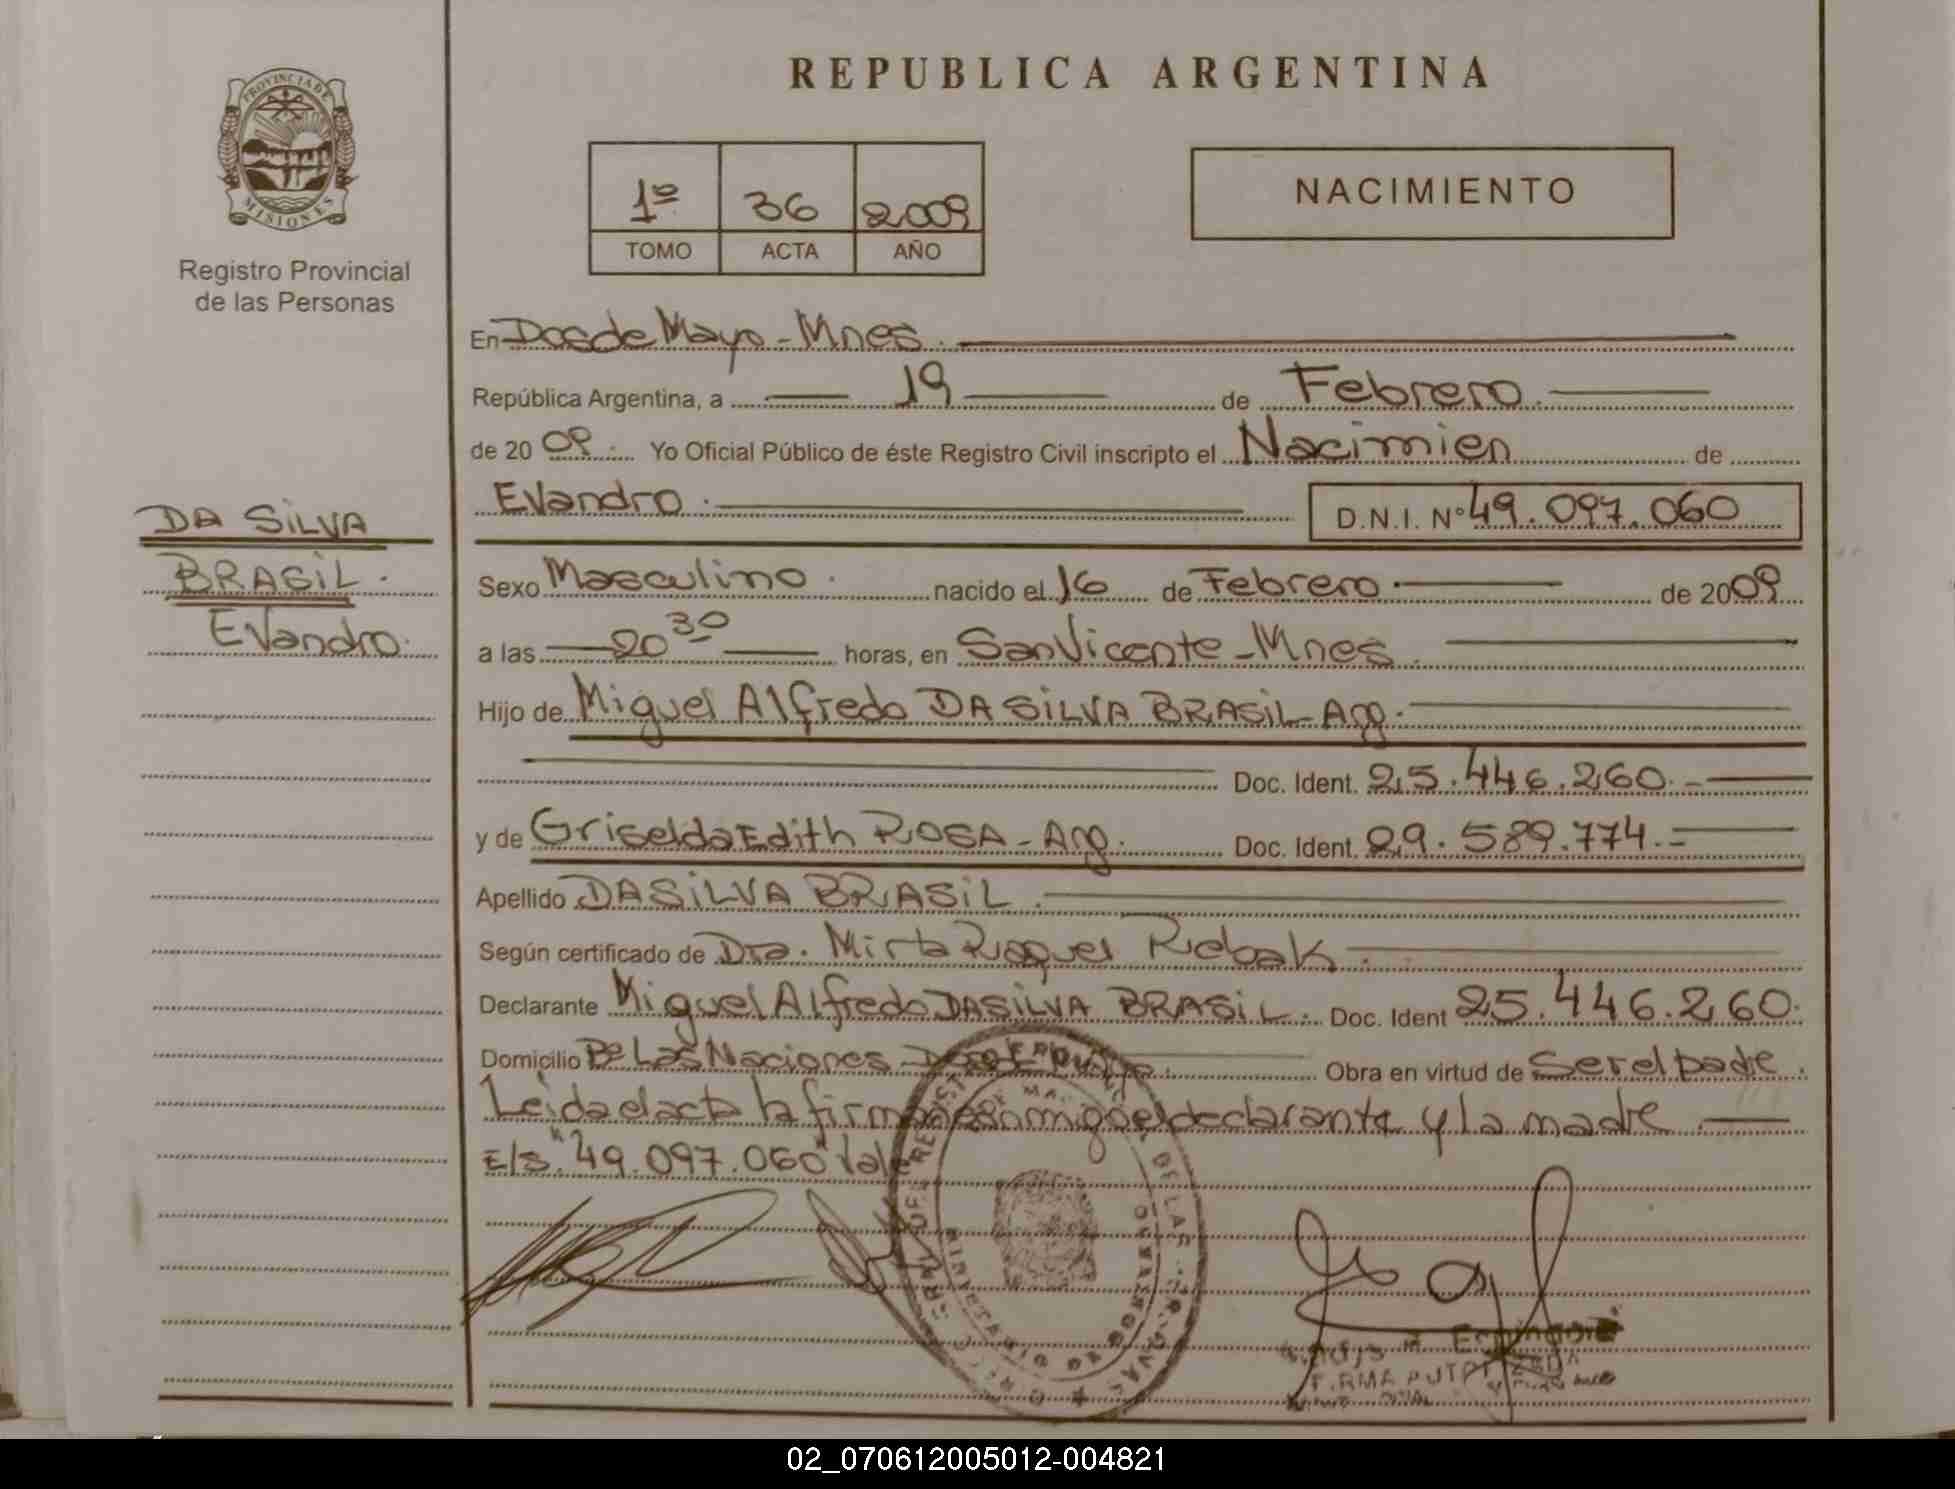 PROVINCIA DE
MISIONES
Registro Provincial
de las Personas
DA SILVA
BRASIL.
Evandro.
REPUBLICA ARGENTINA
1º 36 2009
TOMO ACTA AÑO
NACIMIENTO
En Dos de Mayo - Mnes.
República Argentina, a 19 de Febrero.
de 20 09. Yo Oficial Público de éste Registro Civil inscripto el Nacimien de
Evandro. D.N.I. Nº 49.097.060
Sexo Masculino. nacido el 16 de Febrero. de 2009
a las 20 30 horas, en San Vicente - Mnes.
Hijo de Miguel Alfredo DA SILVA BRASIL - Arg.
Doc. Ident. 25.446.260.-
y de Griselda Edith ROSA - Arg. Doc. Ident. 29.589.774.-
Apellido DA SILVA BRASIL.
Según certificado de Dra. Mirta Raquel Rebak.
Declarante Miguel Alfredo DA SILVA BRASIL. Doc. Ident 25.446.260.
Domicilio Bº Las Naciones Obra en virtud de Ser el padre.
Leida el acta la firman conmigo el declarante y la madre.
E/s. "49.097.060" Vale
FIRMA AUTORIZADA
02_070612005012-004821